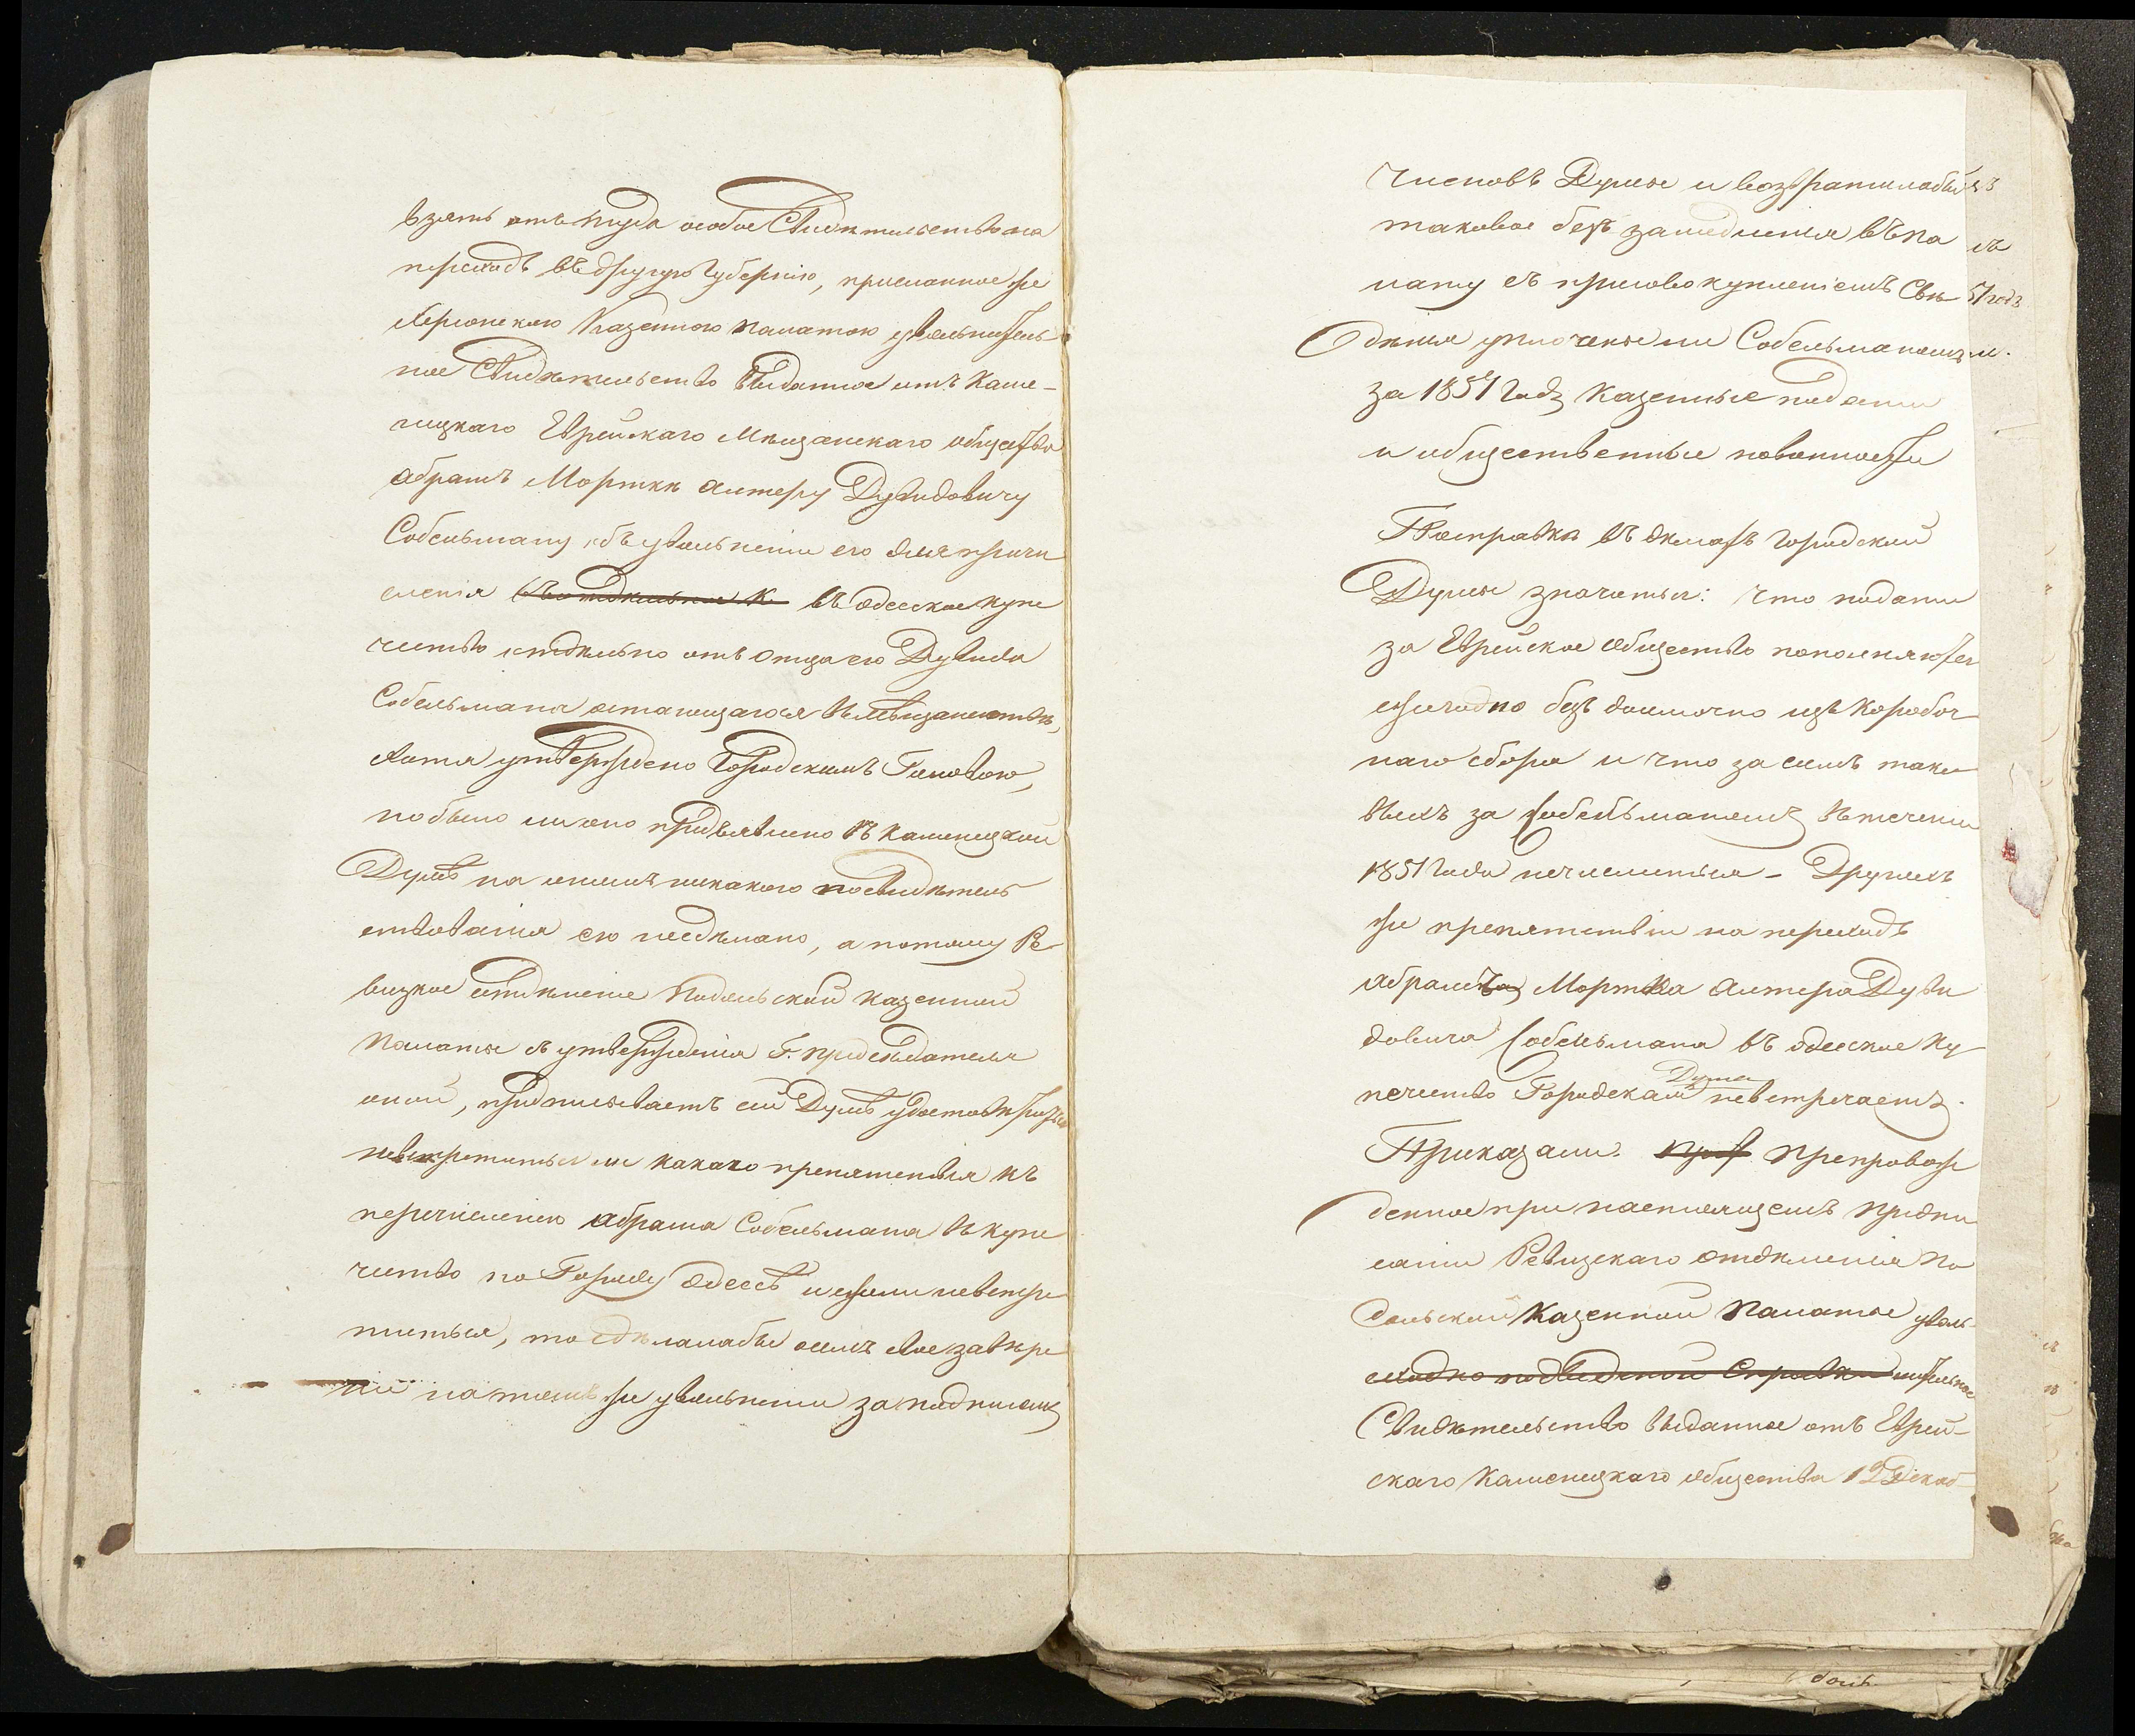 взять оттуда особое Свидѣтельство на
переходъ въ другую Губернію, присланное же
Херсонскою Казенною Палатою увольнитель
ное Свидѣтельство выданное отъ Каме-
ницкаго Еврейскаго Мѣщанскаго общества
Абрамъ Морткѣ Алтеру Дувидовичу
Собельману, объ увольненіи его для причи
сленія въ одесское купе
чество отдѣльно отъ отца его Дувида
Собельмана остающагося въ мѣщанствѣ,
хотя утверждено Городскимъ Головою,
но было ли оно предъявлено въ Каменецкой
Думѣ на немъ никакого посвидѣтель
ствованія ею несдѣлано, а потому Ре
визское отдѣленіе Подольской казенной
Палаты съ утвержденія Г. предсѣдателя
оной, предписываетъ сей Думѣ удостовѣрить
невстретится ли какого препятствія къ
перечисленію Абрама Собельмана въ купе
чество по Городу Одессѣ и ежели невстре
тится, то сдѣлалабы о семъ свое завѣре
ніе на томъ же увольненіи за подписомъ
Членовъ Думы и возвратилабы
таковое безъ замедленія въ Па
лату съ присовокупленіемъ Свѣ
денія уплочены ли Собельманомъ
за 1851 Годъ казенные подати
и общественные повинности
По справкѣ въ дѣлахъ Городской
Думы значится: что подати
за Еврейское Общество пополняются
ежегодно безъ доимочно изъ Коробоч
наго сбора и что за симъ тако
выхъ за Собельманомъ въ теченіи
1851 Года нечислится - Другихъ
же препятствіи на переходъ
Абрамъ Мортка Алтера Дуви
довича Собельмана въ одесское Ку
печество Городская Дума невстречаетъ.
Приказали. Препровож
денное при настоящемъ предпи
саніи Ревизскаго отдѣленія По
дольской Казенной Палаты уволь
сходно подведенной Справки нительное
Свидѣтельство выданное отъ Еврей-
скаго Каменецкаго общества 12 Декаб